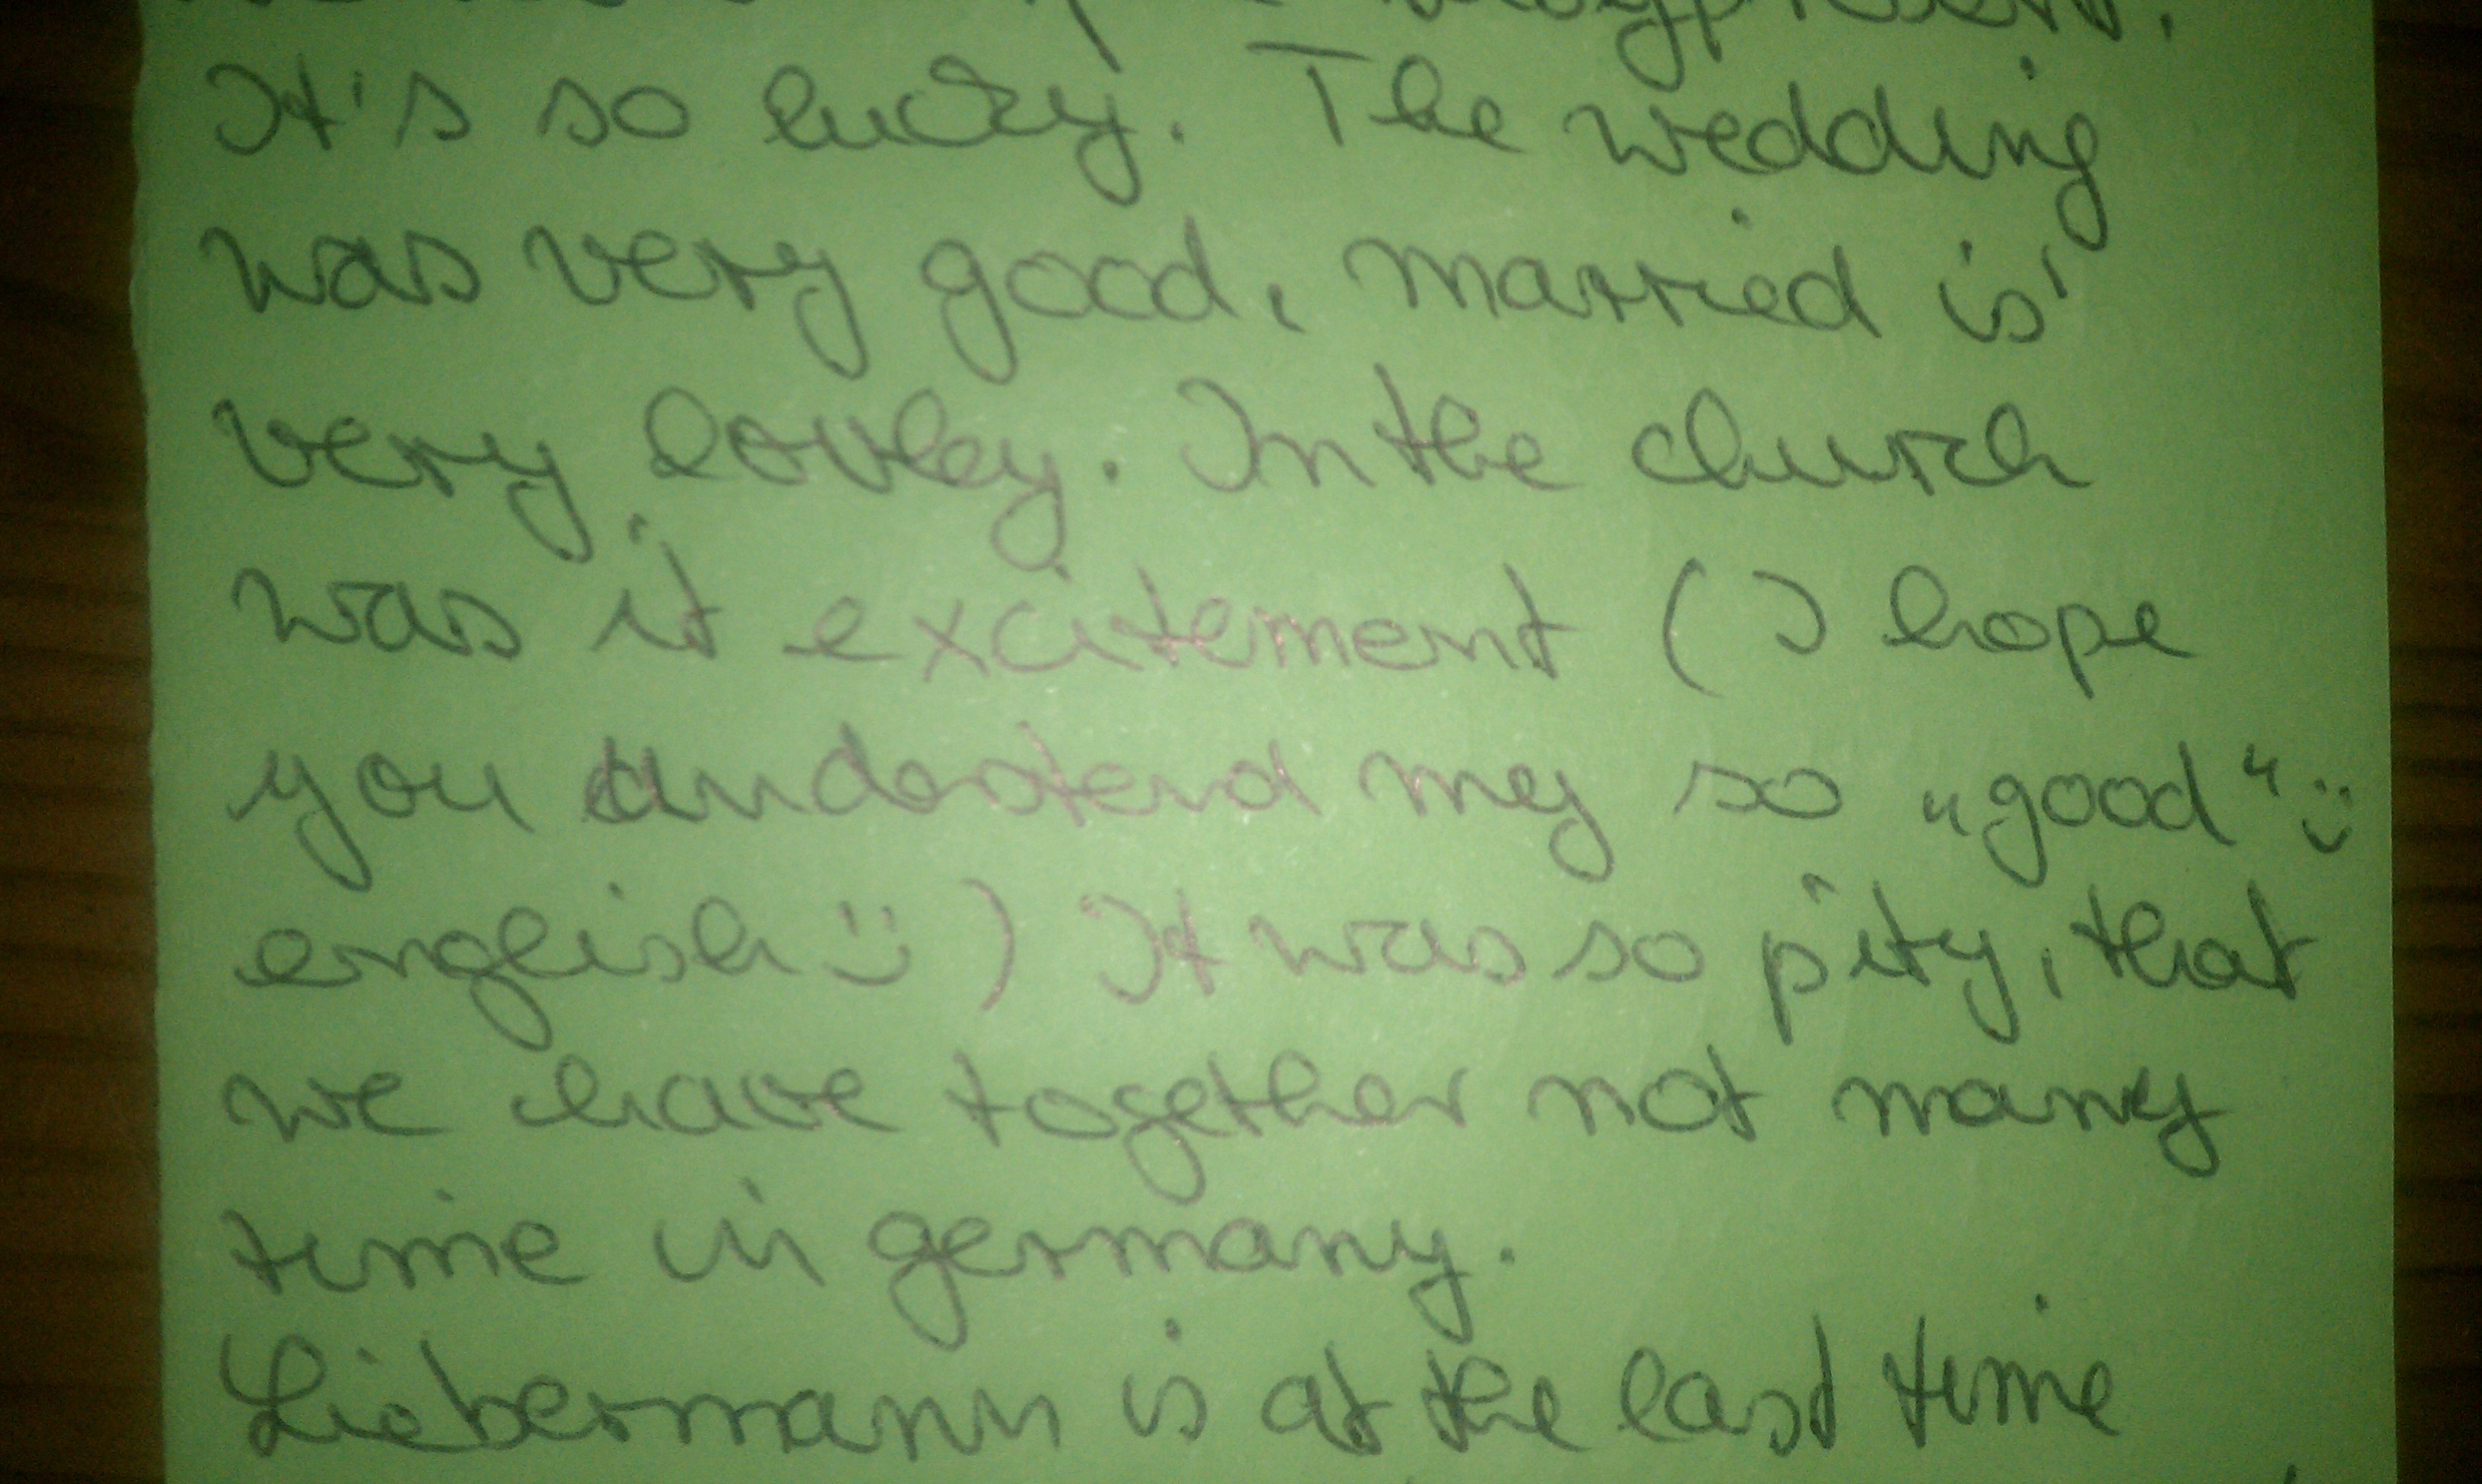 It's so lucky. The wedding
was very good, married is'
very lovley. In the church
was it excitement (I hope
you understend my so „good“ :)
english :) ) It was so pity, that
we have together not many
time in germany.
Liebermann is at the last time